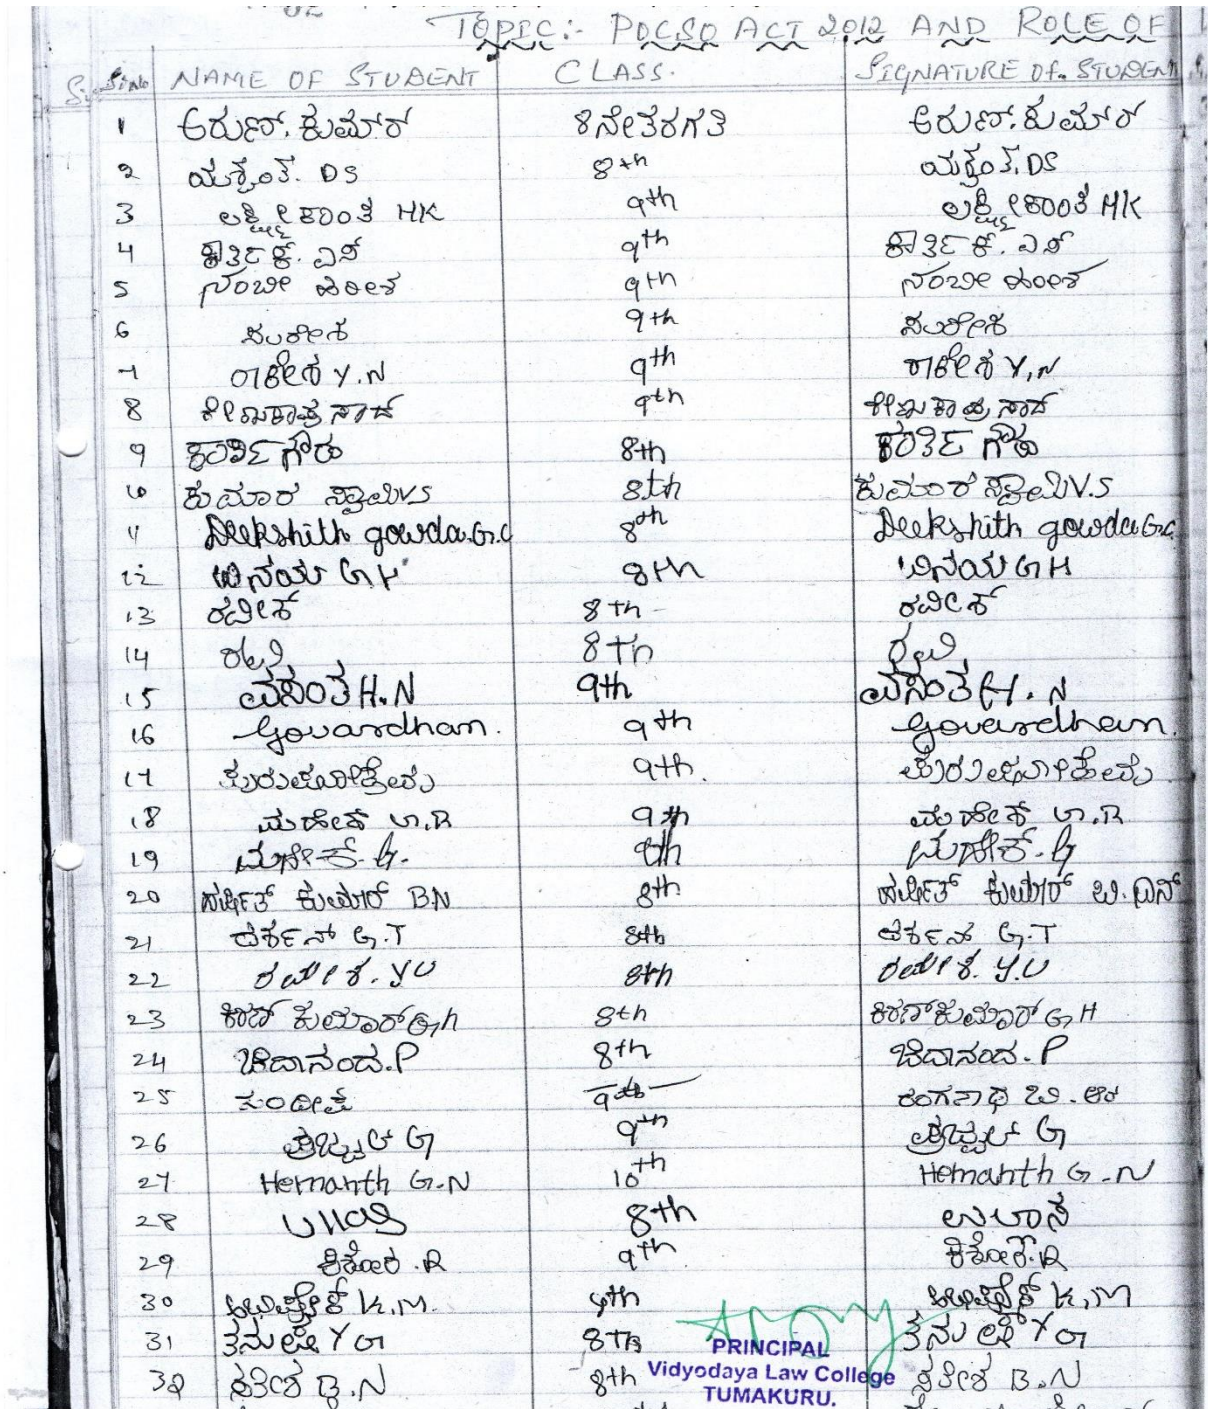 TOPIC:- POCSO ACT 2012 AND ROLE OF
Sl.No NAME OF STUDENT CLASS. SIGNATURE OF STUDENT
1 ಅರುಣ್.ಕುಮಾರ್ 8ನೇತರಗತಿ ಅರುಣ್.ಕುಮಾರ್
2 ಯಶ್ವಂತ್. DS 8th ಯಶ್ವಂತ್. DS
3 ಲಕ್ಷ್ಮೀಕಾಂತ HK 9th ಲಕ್ಷ್ಮೀಕಾಂತ HK
4 ಕಾರ್ತಿಕ್. ಎಸ್ 9th ಕಾರ್ತಿಕ್. ಎಸ್
5 9th
6 ಸುರೇಶ 9th ಸುರೇಶ
7 ರಾಕೇಶ Y.N 9th ರಾಕೇಶ Y.N
8 9th
9 ಗೌಡ 8th ಗೌಡ
10 ಕುಮಾರ ಸ್ವಾಮಿ V.S 8th ಕುಮಾರ ಸ್ವಾಮಿ V.S
11 Deekshith gowda.G.C 8th Deekshith gowda G.C
12 ವಿನಯ G H 8th ವಿನಯ G H
13 ರವೀಶ್ 8th ರವೀಶ್
14 ರವಿ 8th ರವಿ
15 ವಸಂತ H.N 9th ವಸಂತ H.N
16 Govardhan. 9th Govardhan.
17 9th.
18 ಮಹೇಶ್ 9th ಮಹೇಶ್
19 G. 8th G
20 ಹರ್ಷಿತ್ ಕುಮಾರ್ B.N 8th ಹರ್ಷಿತ್ ಕುಮಾರ್ ಬಿ.ಎನ್
21 G.T 8th G.T
22 ರಮೇಶ. Y.U 8th ರಮೇಶ. Y.U
23 ಕಿರಣ್ ಕುಮಾರ್ G h 8th ಕಿರಣ್ ಕುಮಾರ್ G H
24 ಚಿದಾನಂದ.P 8th ಚಿದಾನಂದ.P
25 ಸಂದೀಪ 9th ರಂಗನಾಥ ಬಿ.ಆರ್
26 ಪ್ರಜ್ವಲ್ G 9th ಪ್ರಜ್ವಲ್ G
27 Hemanth G.N 10th Hemanth G.N
28 8th
29 ಕಿಶೋರ.R 9th ಕಿಶೋರ.R
30 ಅಭಿಷೇಕ್ K.M. ಅಭಿಷೇಕ್ K.M
31 Y G 8th Y G
32 ಸತೀಶ B.N 8th ಸತೀಶ B.N
PRINCIPAL
Vidyodaya Law College
TUMAKURU.